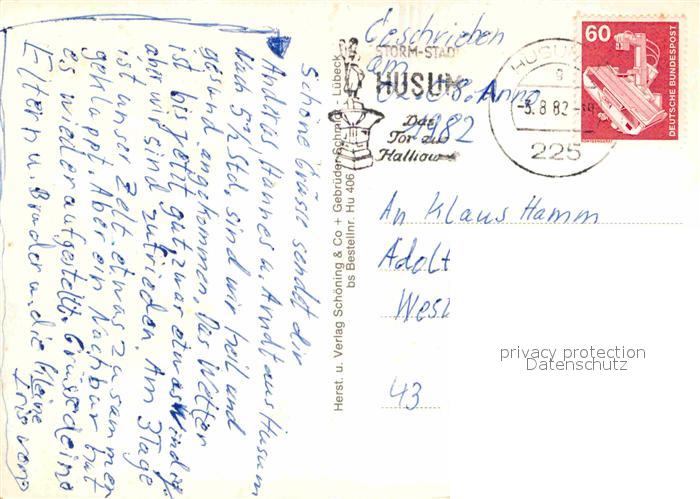 Schöne Grüsse sendet dir
Andreas Hannes u. Arndt aus Husum
Nach 5½ Std. sind wir heil und
gesund angekommen. Das Wetter
ist bis jetzt gut, zwar etwas windig
aber wir sind zufrieden. Am 3 Tage
ist unser Zelt etwas zusammen
geklappt. Aber ein Nachbar hat
es wieder aufgestellt. Grüsse deine
Eltern u. Bruder u. die kleine
Iris von
Herst. u. Verlag Schöning & Co + Gebrüder Schmidt, Lübeck
bs Bestellnr. Hu 406
Geschrieben
am
8. Anno
1982
STORM-STADT
HUSUM
Das
Tor zur
Halligwelt
HUSUM
-5.8.82
225
60
DEUTSCHE BUNDESPOST
An Klaus Hamm
Adolf
Wes
43
privacy protection
Datenschutz